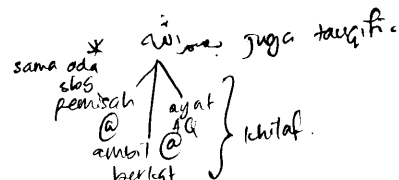 * بسم الله juga tauqifi.
sama ada
sbg
pemisah
@
ambil
berkat
@
ayat
AQ
} khilaf.